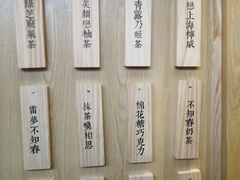 綠芝麻果茶
美顏戀柚茶
青露乃姬茶
戀上海檸威
雷夢不知春
抹茶喚相思
綿花糖巧克力
不知春奶茶